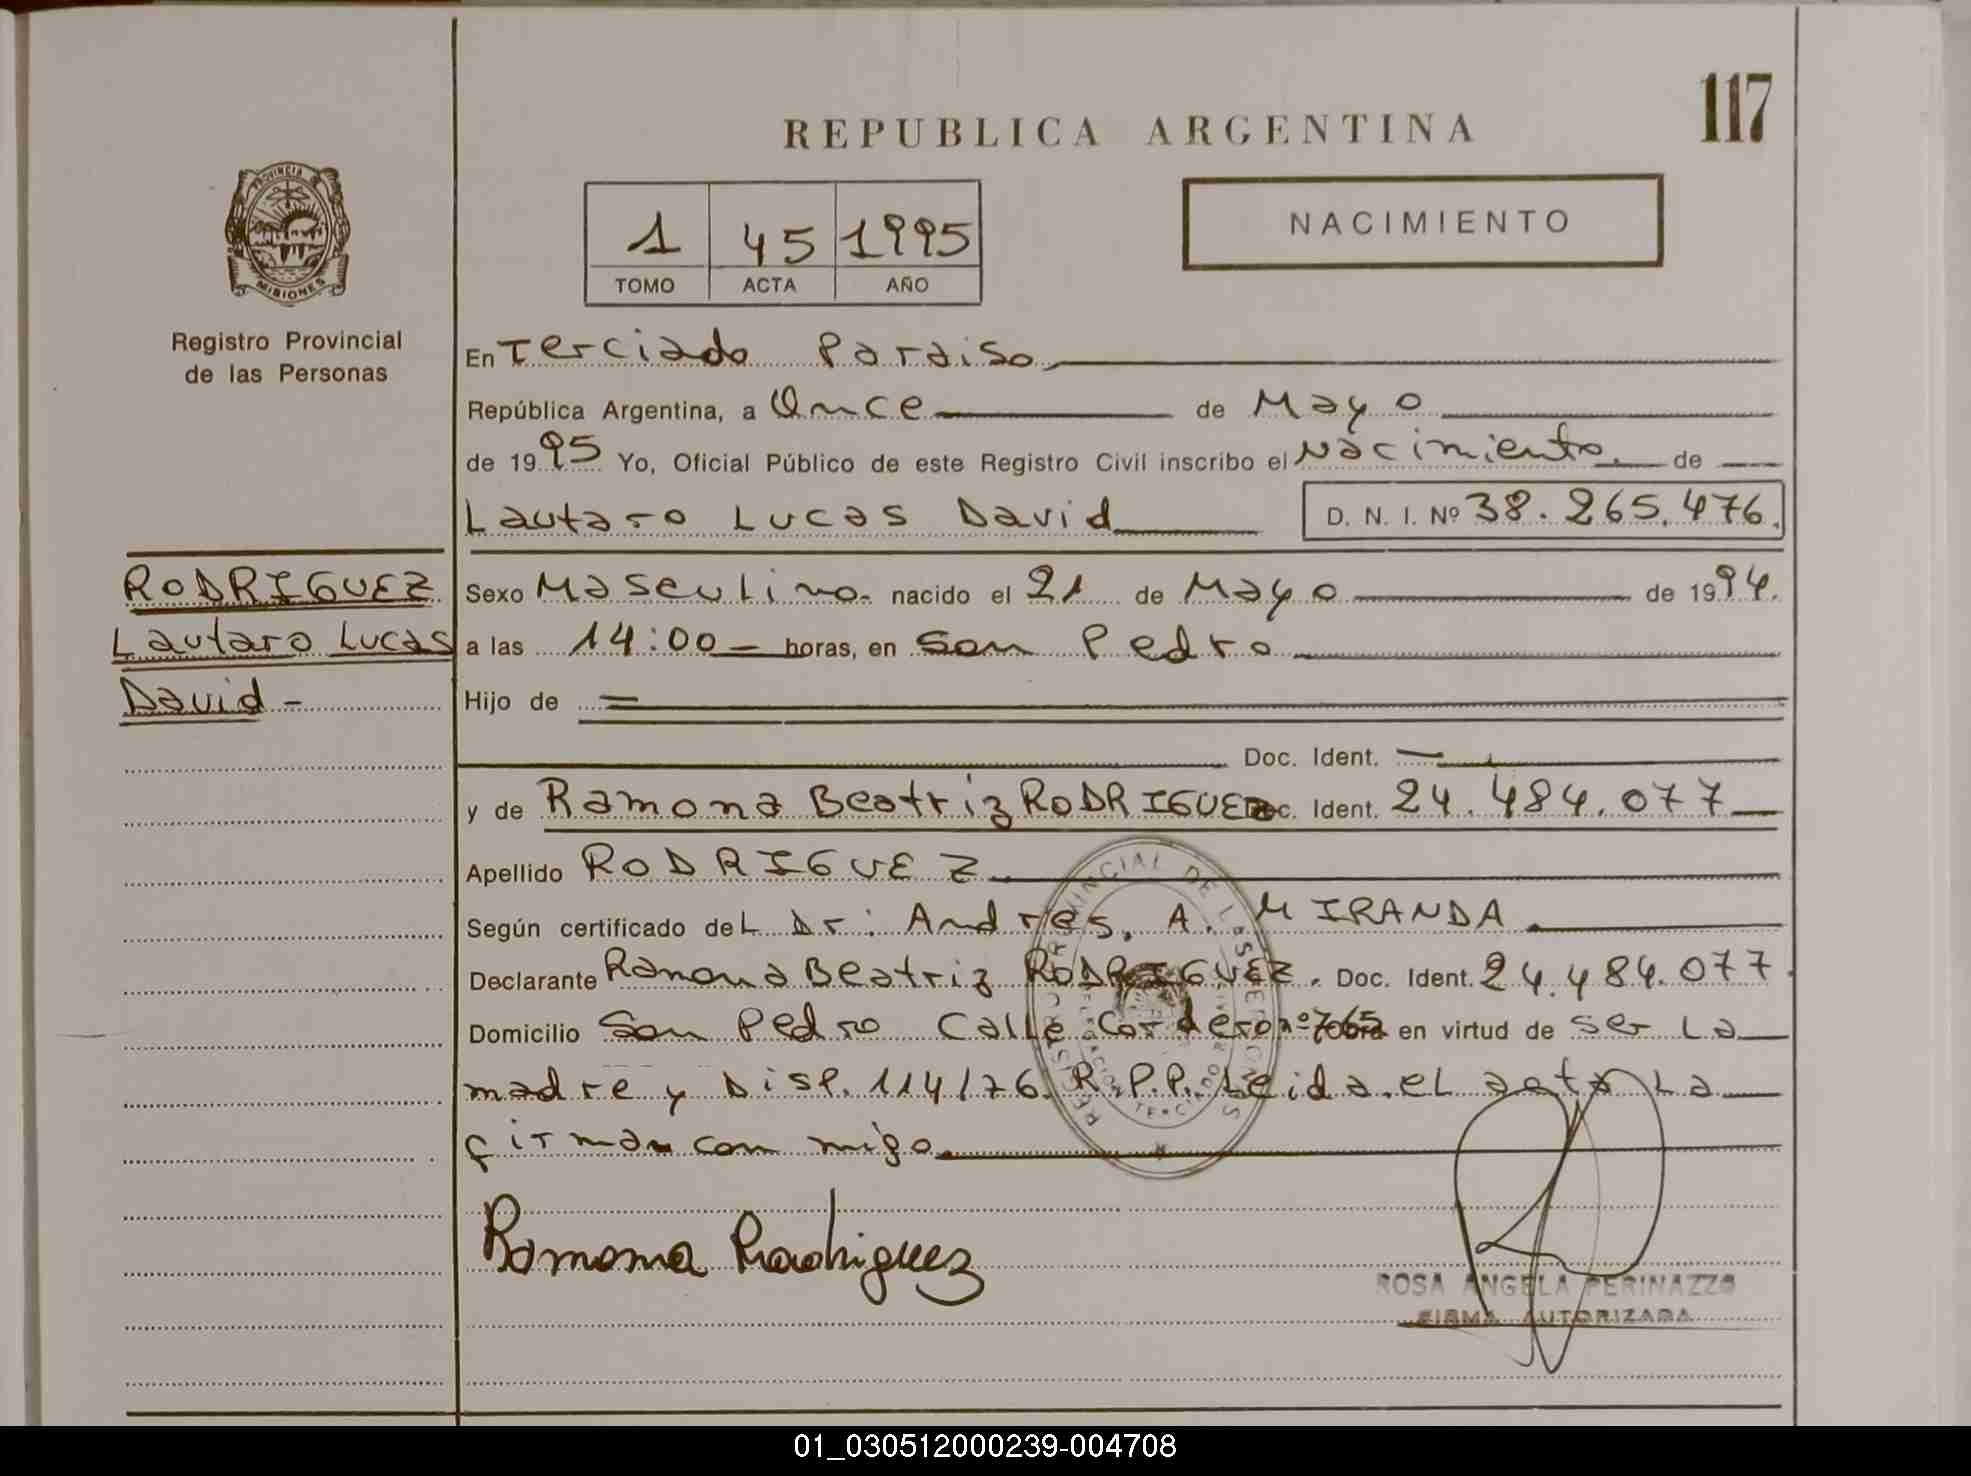 117
REPUBLICA ARGENTINA
NACIMIENTO
1 45 1995
TOMO ACTA AÑO
PROVINCIA
MISIONES
Registro Provincial
de las Personas
RODRIGUEZ
Lautaro Lucas
David -
En Terciado Paraiso
República Argentina, a Once de Mayo
de 1995 Yo, Oficial Público de este Registro Civil inscribo el Nacimiento. de
Lautaro Lucas David D. N. I. Nº 38.265.476.
Sexo Masculino. nacido el 21 de Mayo de 1994.
a las 14:00 horas, en San Pedro
Hijo de =
Doc. Ident. —
y de Ramona Beatriz RODRIGUEZ Doc. Ident. 24.484.077
Apellido RODRIGUEZ.
Según certificado del Dr: Andres. A. MIRANDA.
Declarante Ramona Beatriz RODRIGUEZ. Doc. Ident. 24.484.077.
Domicilio San Pedro Calle Cordero nº 765 en virtud de ser La
madre y Disp. 114/76. R.P.P. Leida el acta La
firman con migo.
Ramona Rodriguez
ROSA ANGELA PERINAZZO
FIRMA AUTORIZADA
01_030512000239-004708